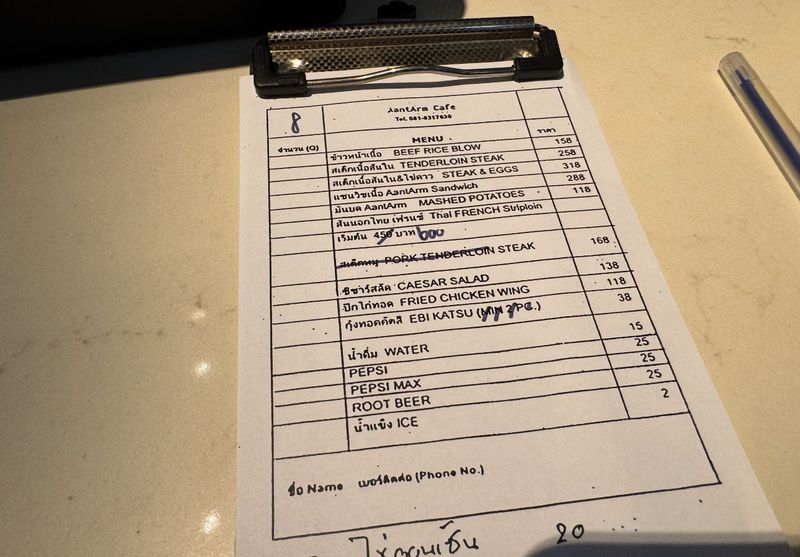 AantArm Cafe
Tel. 081-8317630
8
จำนวน (Q) MENU ราคา
ข้าวหน้าเนื้อ BEEF RICE BLOW 158
สเต็กเนื้อสันใน TENDERLOIN STEAK 258
สเต็กเนื้อสันใน&ไข่ดาว STEAK & EGGS 318
แซนวิชเนื้อ AantArm Sandwich 288
มันบด AantArm MASHED POTATOES 118
สันนอกไทย เฟรนซ์ Thai FRENCH Striploin
เริ่มต้น 450 บาท 600
สเต็กหมู PORK TENDERLOIN STEAK 168
ซีซาร์สลัด CAESAR SALAD 138
ปีกไก่ทอด FRIED CHICKEN WING 118
กุ้งทอดคัตสึ EBI KATSU (MIN 2 PC.) 38
น้ำดื่ม WATER 15
PEPSI 25
PEPSI MAX 25
ROOT BEER 25
น้ำแข็ง ICE 2
ชื่อ Name เบอร์ติดต่อ (Phone No.)
20